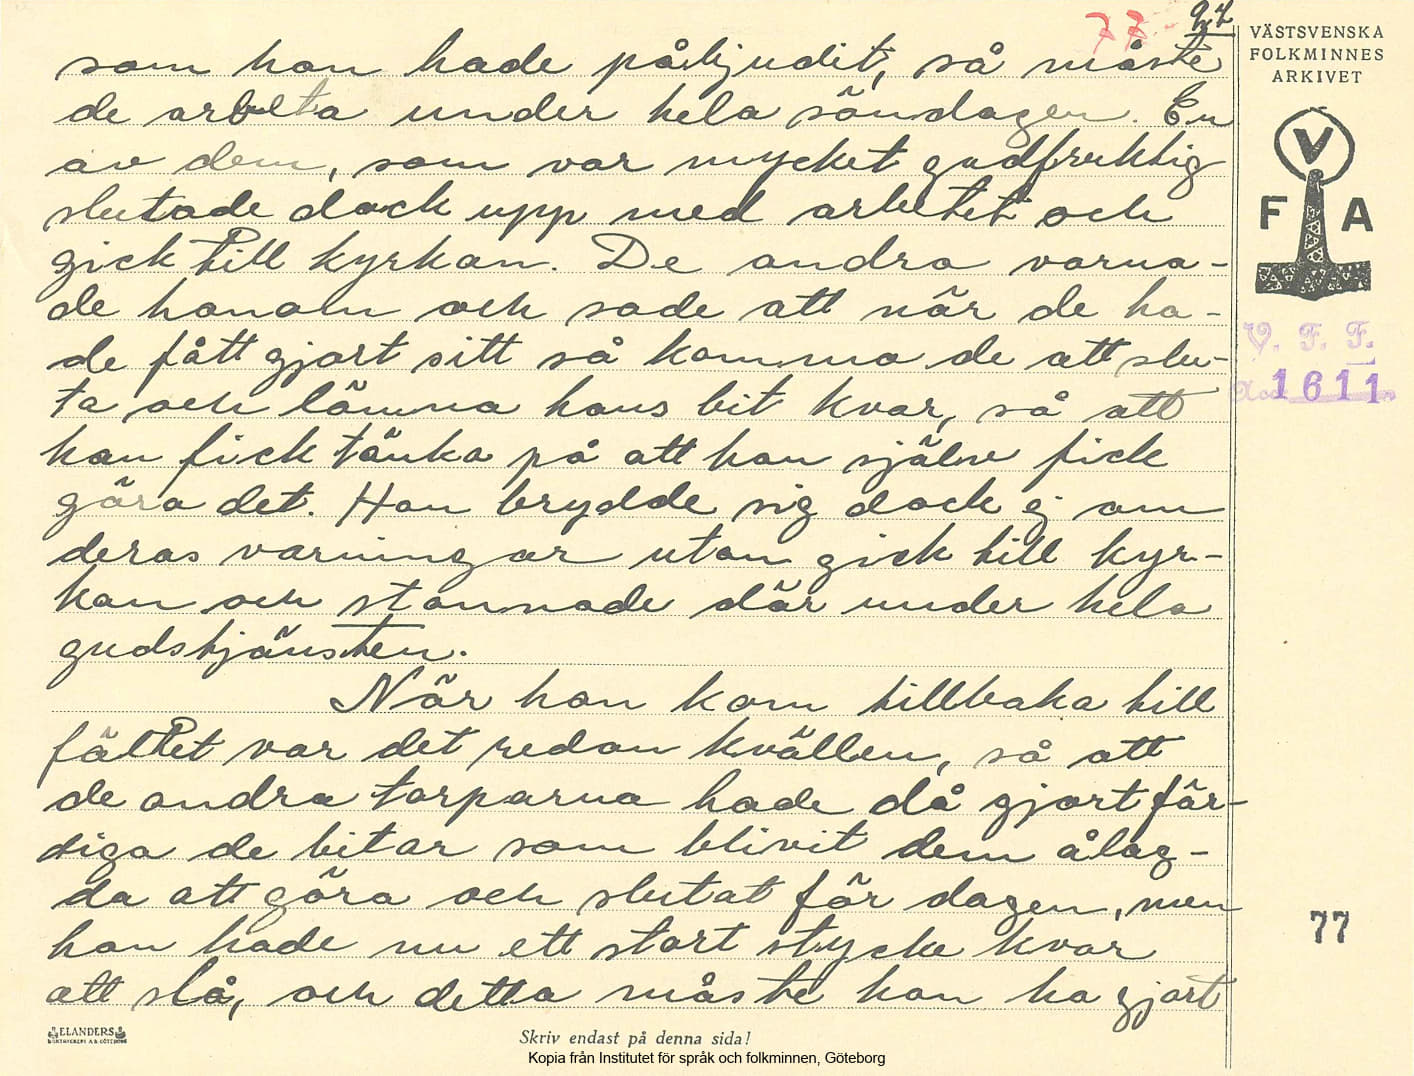 77 22
VÄSTSVENSKA
FOLKMINNES
ARKIVET
V
F A
V. F. F.
1611
som han hade påbjudit, så måste
de arbeta under hela söndagen. En
av dem, som var mycket gudfruktig
slutade dock upp med arbetet och
gick till kyrkan. De andra varna-
de honom och sade att när de ha-
de fått gjort sitt så komma de att slu-
ta och lämna hans bit kvar, så att
han fick tänka på att han själv fick
göra det. Han brydde sig dock ej om
deras varningar utan gick till kyr-
kan och stannade där under hela
gudstjänsten.
När han kom tillbaka till
fältet var det redan kvällen, så att
de andra torparna hade då gjort fär-
diga de bitar som blivit dem ålag-
da att göra och slutat för dagen, men
han hade nu ett stort stycke kvar
att slå, och detta måste han ha gjort
77
ELANDERS
BOKTRYCKERI A.B. GÖTEBORG
Skriv endast på denna sida!
Kopia från Institutet för språk och folkminnen, Göteborg